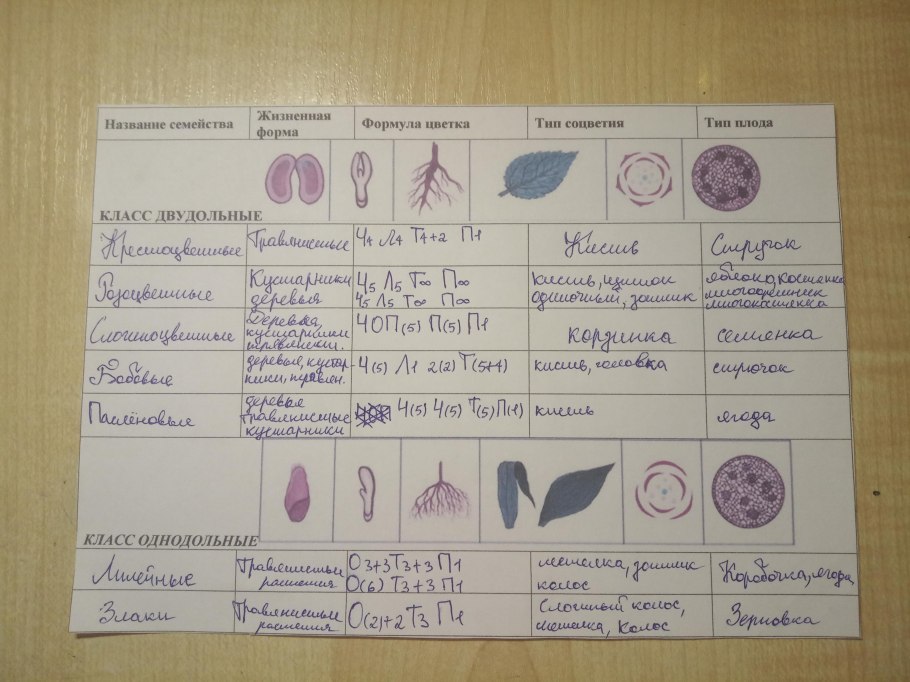 Название семейства Жизненная форма Формула цветка Тип соцветия Тип плода
КЛАСС ДВУДОЛЬНЫЕ
Крестоцветные Травянистые Ч4 Л4 Т4+2 П1 Кисть Стручок
Розоцветные Кустарники Ч5 Л5 Т∞ П∞ кисть, щиток яблоко, костянка
деревья Ч5 Л5 Т∞ П∞ одиночный, зонтик многоорешник
многокостянка
Сложноцветные Деревья, ЧОП(5) П(5) П1 Корзинка семянка
кустарники
травянист.
Бобовые деревья, кустар Ч(5) Л1 2(2) Т(5+4) кисть, головка стручок
ники, травян.
Паслёновые деревья Ч(5) Ч(5) Т(5)П(1) кисть ягода
травянистые
кустарники
КЛАСС ОДНОДОЛЬНЫЕ
Лилейные Травянистые О3+3Т3+3П1 метелка, зонтик Коробочка, ягода,
растения О(6) Т3+3 П1 колос
Злаки Травянистые О(2)+2 Т3 П1 Сложный колос, Зерновка
растения метелка, колос